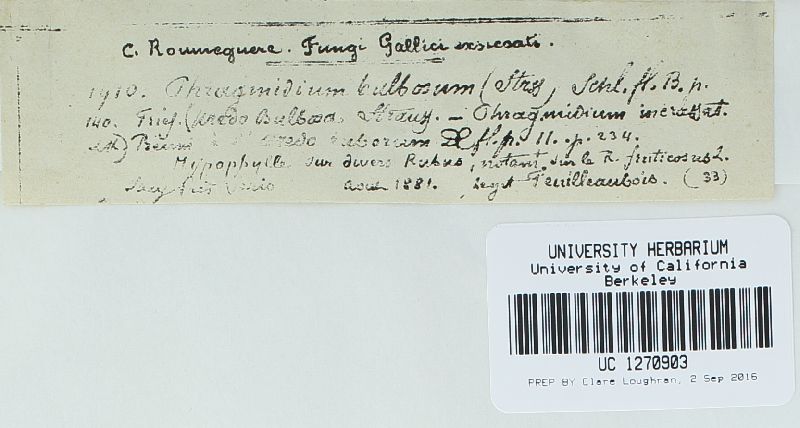 C. Roumeguere. Fungi Gallici exsiccati.
1910. Phragmidium bulbosum (Strs, Schl. fl. B. p.
140. Fries. (Uredo Bulbosa Strauss. — Phragmidium incrassat.
Uredo ruborum DC fl. fr. II. p. 234.
Hypophylle sur divers Rubus, notamt sur le R. fruticosus L.
Aout 1881. Legit Feuilleaubois. (33)
UNIVERSITY HERBARIUM
University of California
Berkeley
UC 1270903
PREP BY Clare Loughran, 2 Sep 2016